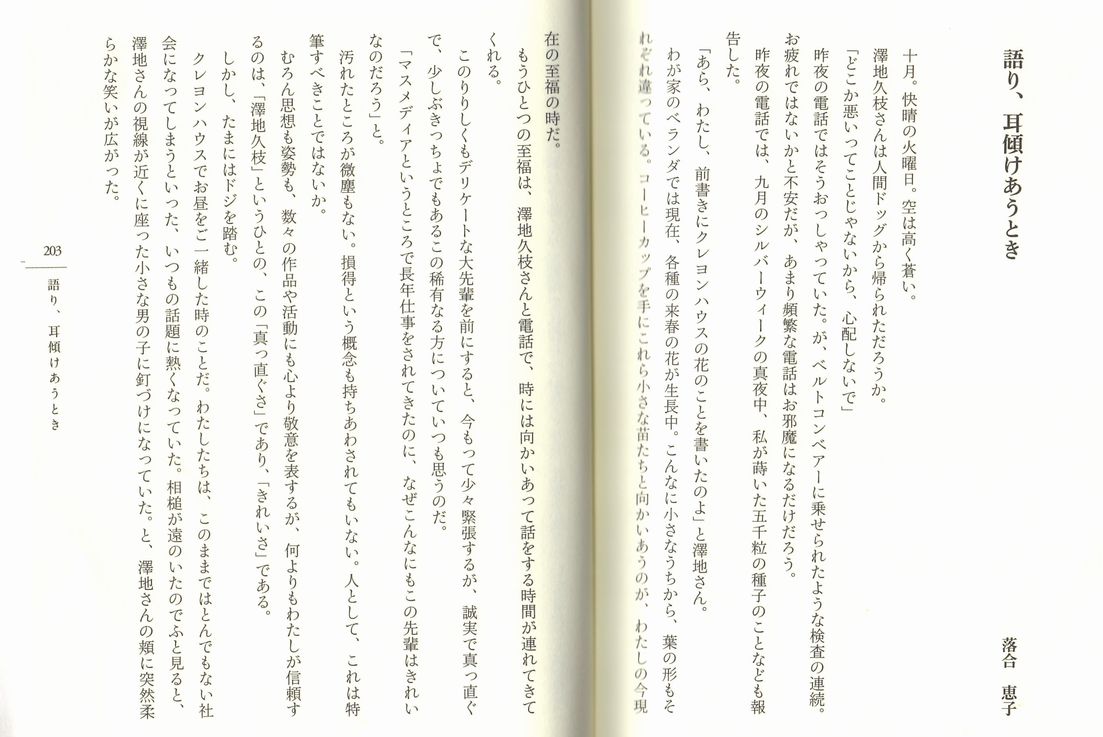 語り、耳傾けあうとき
落合 恵子
十月。快晴の火曜日。空は高く蒼い。
澤地久枝さんは人間ドッグから帰られただろうか。
「どこか悪いってことじゃないから、心配しないで」
昨夜の電話ではそうおっしゃっていた。が、ベルトコンベアーに乗せられたような検査の連続。
お疲れではないかと不安だが、あまり頻繁な電話はお邪魔になるだけだろう。
昨夜の電話では、九月のシルバーウィークの真夜中、私が蒔いた五千粒の種子のことなども報
告した。
「あら、わたし、前書きにクレヨンハウスの花のことを書いたのよ」と澤地さん。
わが家のベランダでは現在、各種の来春の花が生長中。こんなに小さなうちから、葉の形もそ
れぞれ違っている。コーヒーカップを手にこれら小さな苗たちと向かいあうのが、わたしの今現
在の至福の時だ。
もうひとつの至福は、澤地久枝さんと電話で、時には向かいあって話をする時間が連れてきて
くれる。
このりりしくもデリケートな大先輩を前にすると、今もって少々緊張するが、誠実で真っ直ぐ
で、少しぶきっちょでもあるこの稀有なる方についていつも思うのだ。
「マスメディアというところで長年仕事をされてきたのに、なぜこんなにもこの先輩はきれい
なのだろう」と。
汚れたところが微塵もない。損得という概念も持ちあわされてもいない。人として、これは特
筆すべきことではないか。
むろん思想も姿勢も、数々の作品や活動にも心より敬意を表するが、何よりもわたしが信頼す
るのは、「澤地久枝」というひとの、この「真っ直ぐさ」であり、「きれいさ」である。
しかし、たまにはドジを踏む。
クレヨンハウスでお昼をご一緒した時のことだ。わたしたちは、このままではとんでもない社
会になってしまうといった、いつもの話題に熱くなっていた。相槌が遠のいたのでふと見ると、
澤地さんの視線が近くに座った小さな男の子に釘づけになっていた。と、澤地さんの頬に突然柔
らかな笑いが広がった。
203
語り、耳傾けあうとき